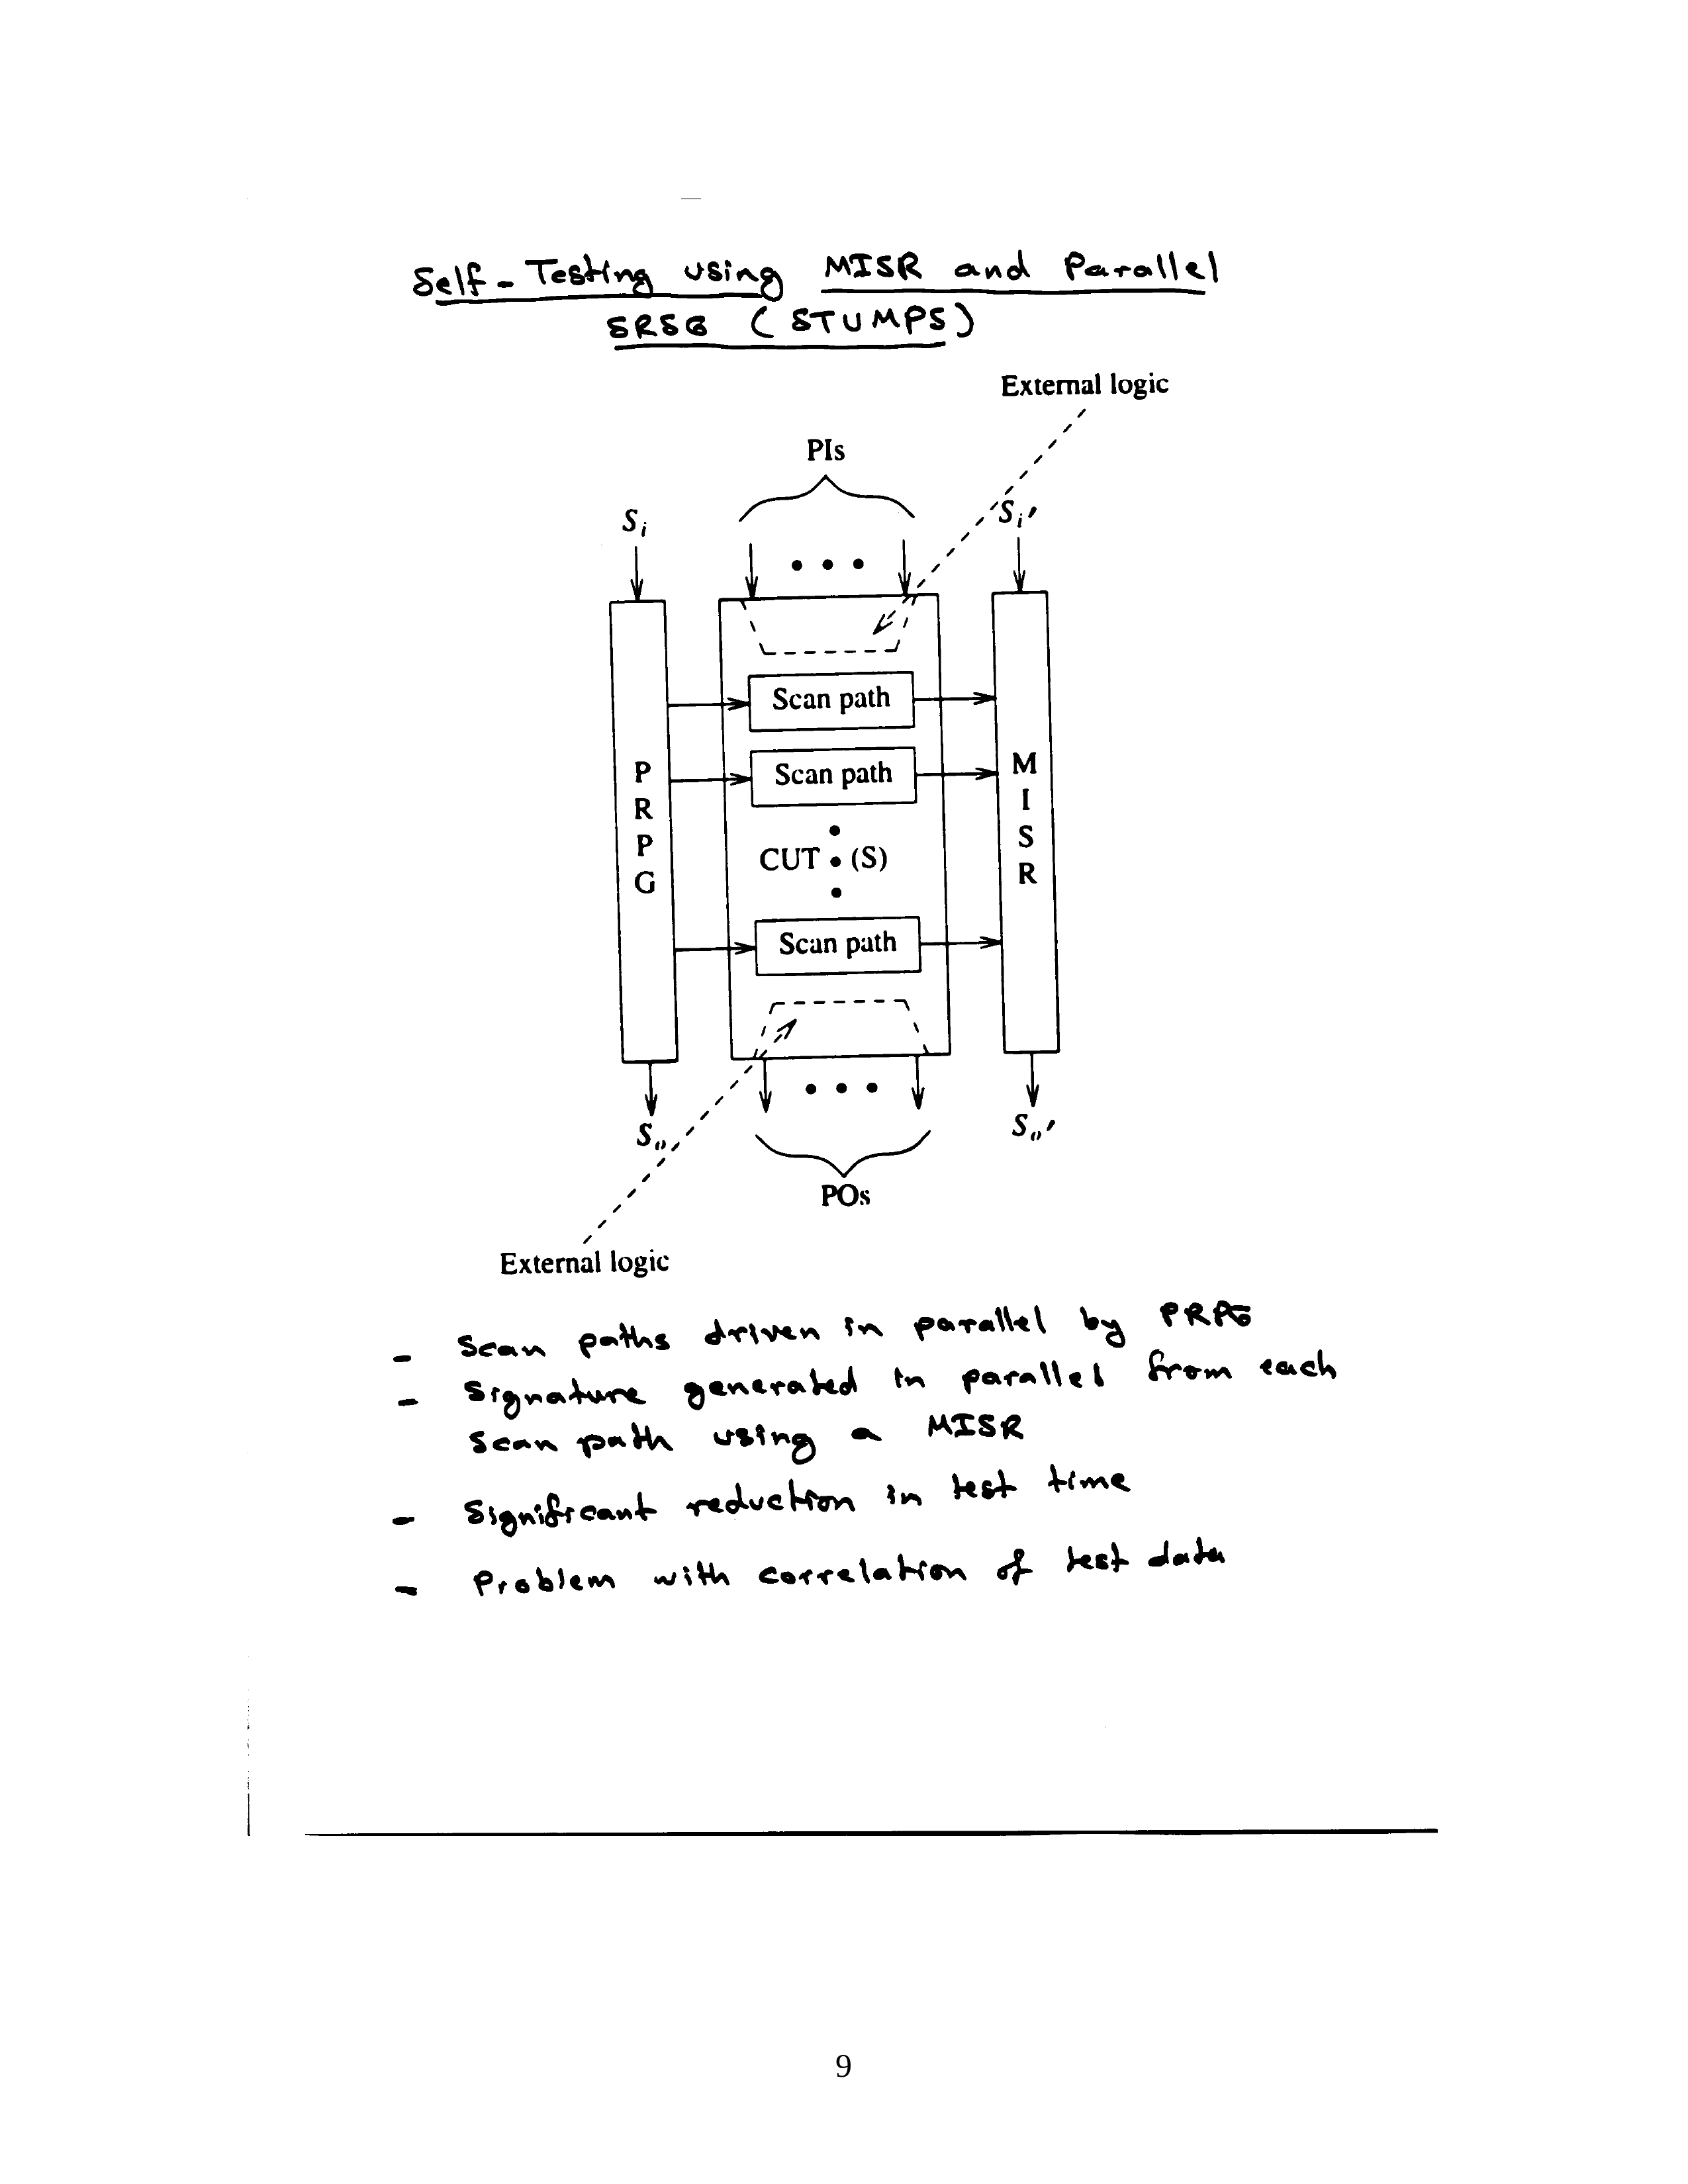 Self-Testing using MISR and Parallel
SRSG (STUMPS)
External logic
PIs
Si
Si'
Scan path
Scan path
PRPG
MISR
CUT (S)
Scan path
So
So'
POs
External logic
- Scan paths driven in parallel by PRPG
- Signature generated in parallel from each
scan path using a MISR
- Significant reduction in test time
- Problem with correlation of test data
9